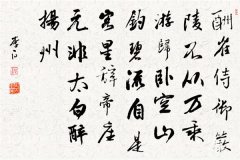 酬崔侍御嚴
陵不從万乘
游歸卧空山
釣碧流自是
客星辭帝座
元非太白醉
揚州